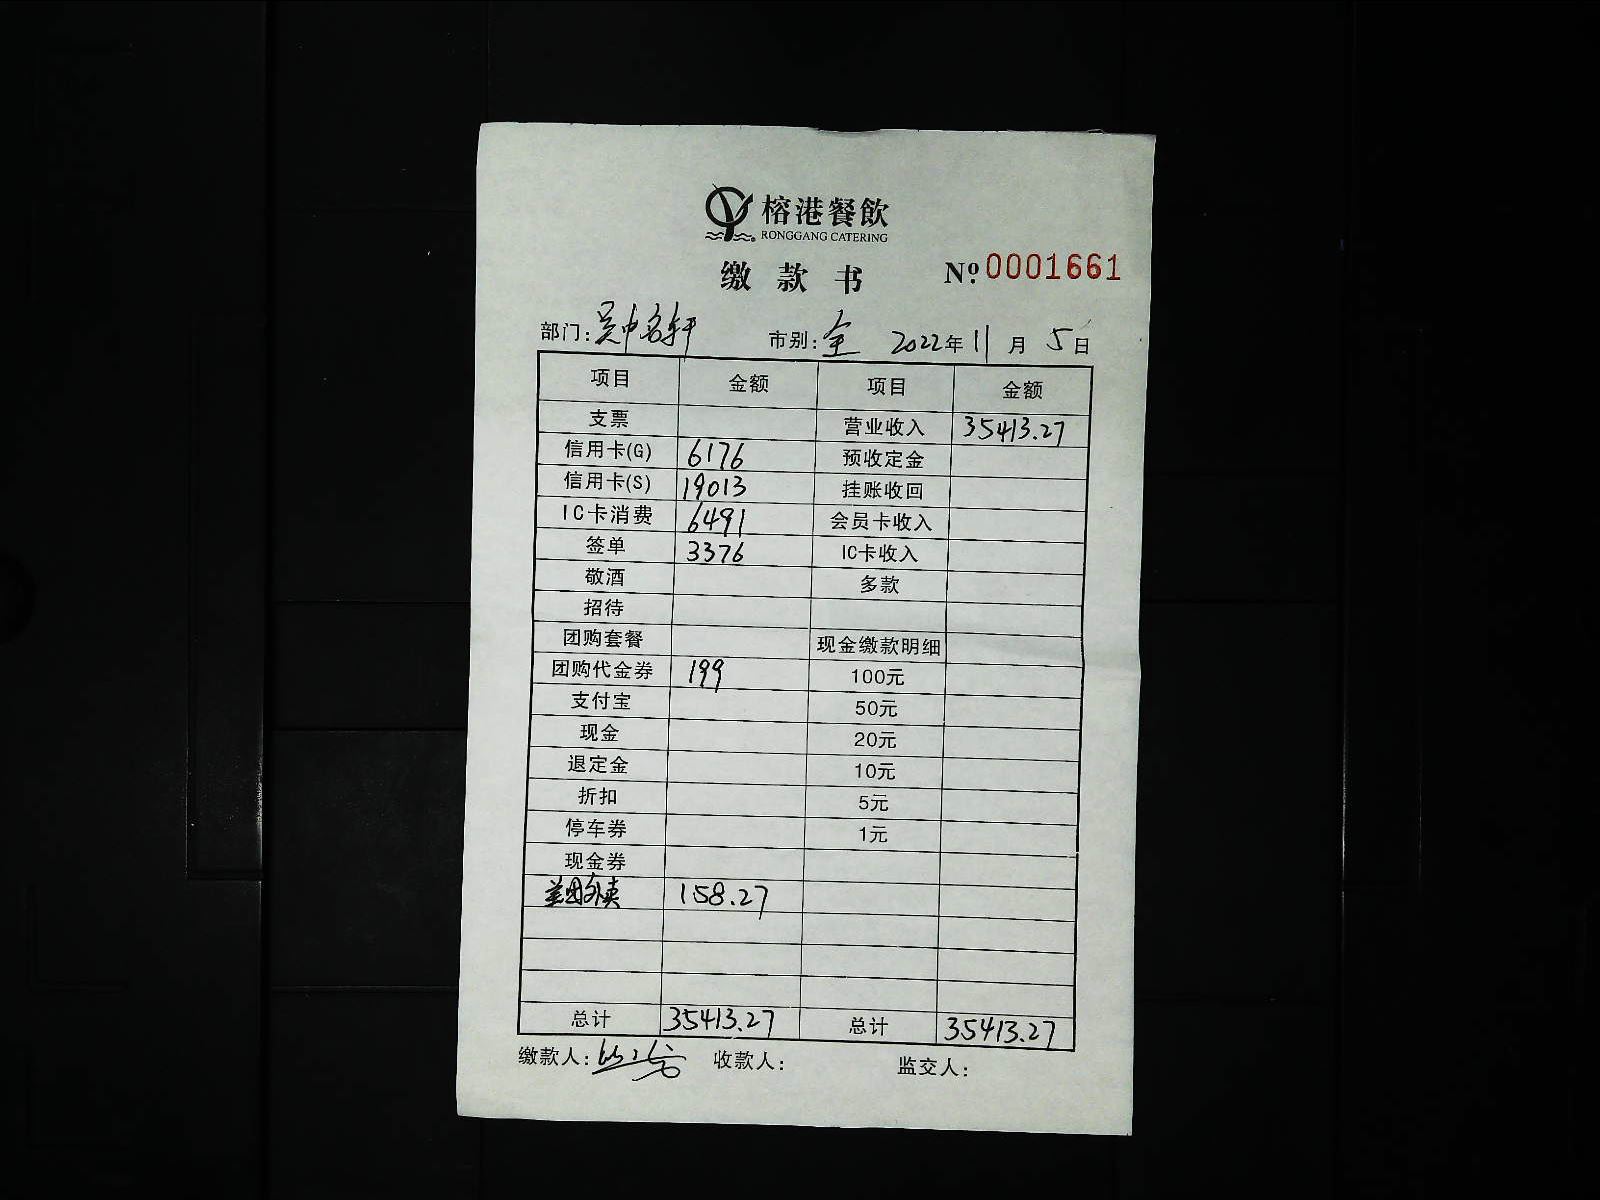 榕港餐飲
RONGGANG CATERING
缴款书 Nº 0001661
部门: 吴中名轩 市别: 全 2022年11月5日
项目 金额 项目 金额
支票 营业收入 35413.27
信用卡(G) 6176 预收定金
信用卡(S) 19013 挂账收回
IC卡消费 6491 会员卡收入
签单 3376 IC卡收入
敬酒 多款
招待
团购套餐 现金缴款明细
团购代金券 199 100元
支付宝 50元
现金 20元
退定金 10元
折扣 5元
停车券 1元
现金券
美团外卖 158.27
总计 35413.27 总计 35413.27
缴款人: 收款人: 监交人: